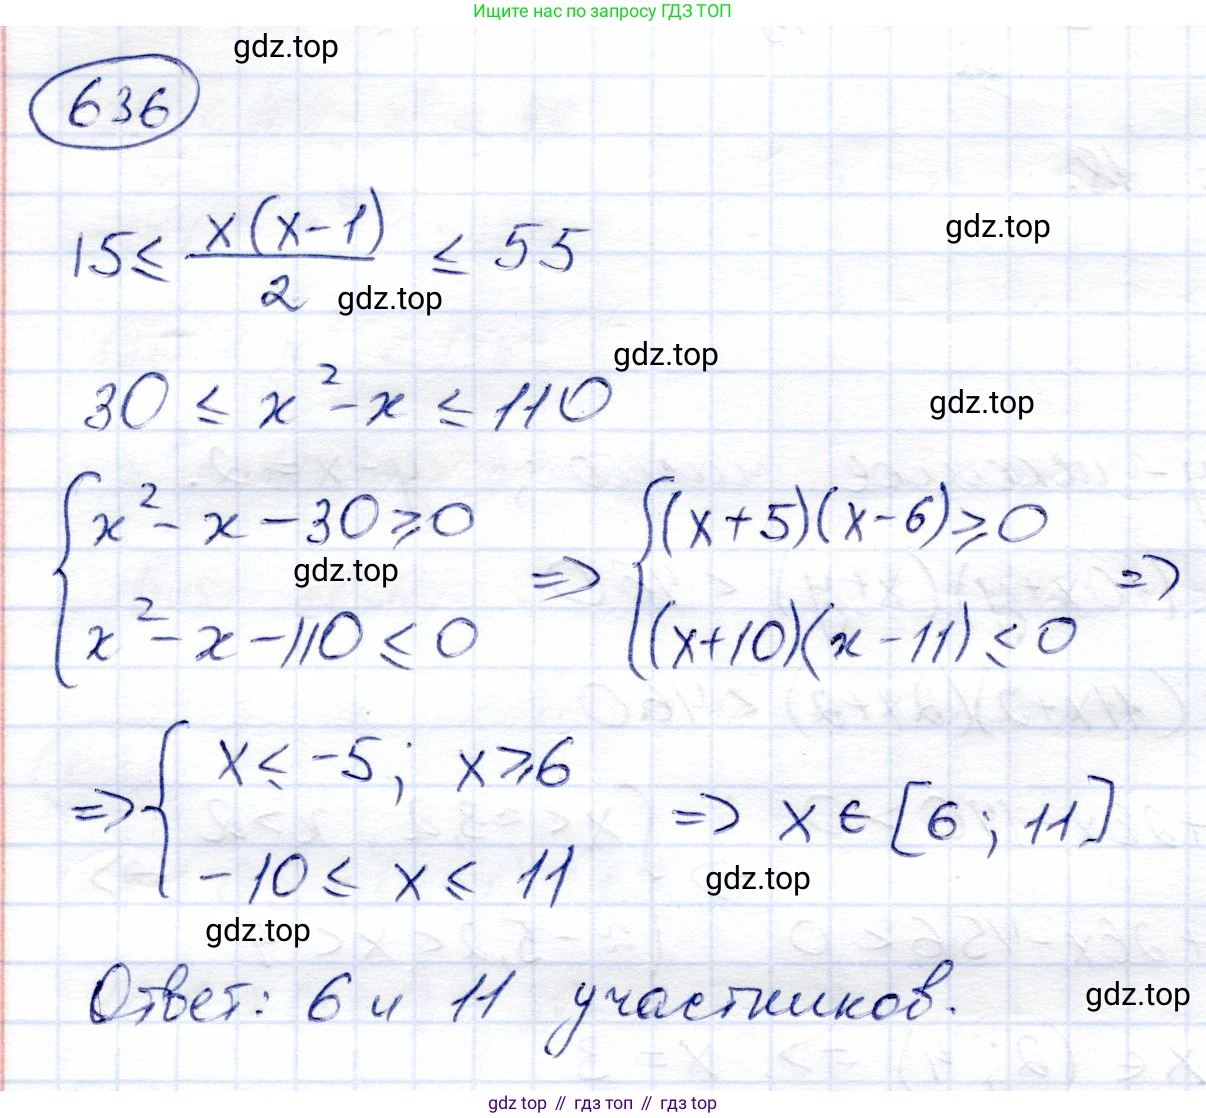 Ищите нас по запросу ГДЗ ТОП
gdz.top
636
15 ≤ x(x-1)/2 ≤ 55
gdz.top
gdz.top
gdz.top
30 ≤ x² - x ≤ 110
gdz.top
{ x² - x - 30 ≥ 0 => { (x+5)(x-6) ≥ 0 =>
gdz.top
x² - x - 110 ≤ 0 (x+10)(x-11) ≤ 0
=> { x ≤ -5; x ≥ 6 => x ∈ [6; 11]
-10 ≤ x ≤ 11
gdz.top
gdz.top
Ответ: 6 и 11 участников.
gdz.top
gdz.top // гдз топ // gdz.top